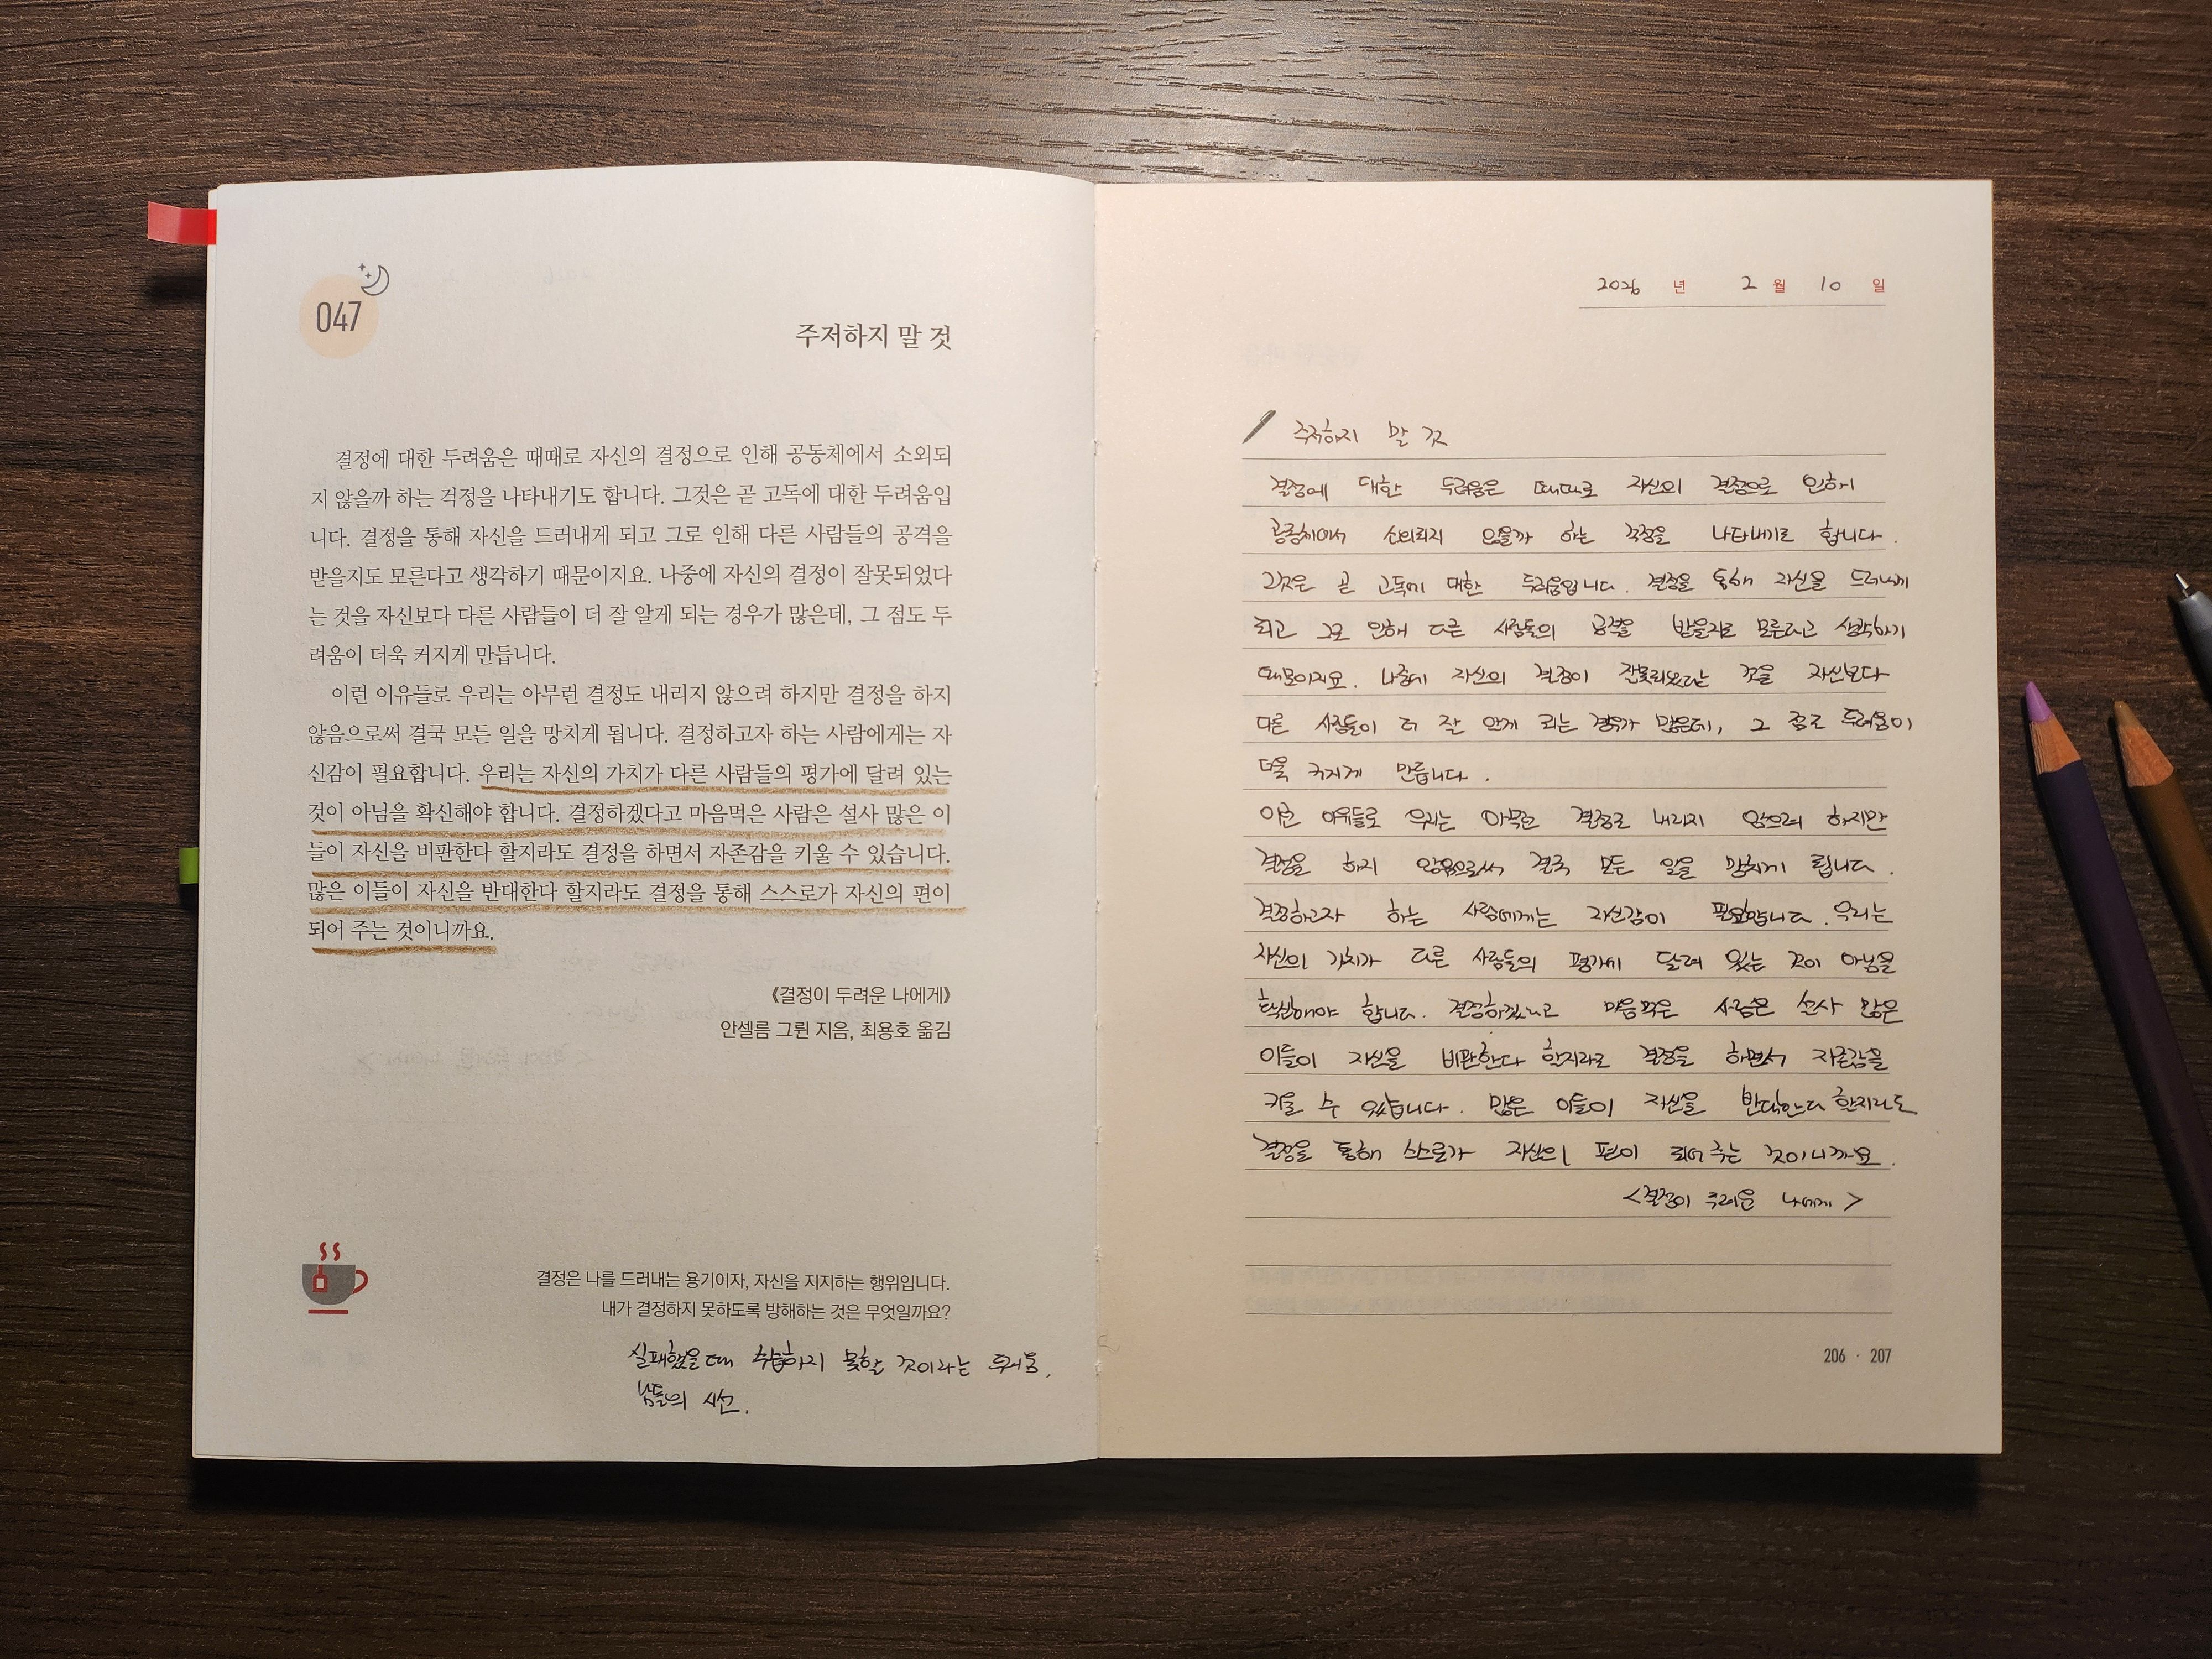 047
주저하지 말 것
결정에 대한 두려움은 때때로 자신의 결정으로 인해 공동체에서 소외되
지 않을까 하는 걱정을 나타내기도 합니다. 그것은 곧 고독에 대한 두려움입
니다. 결정을 통해 자신을 드러내게 되고 그로 인해 다른 사람들의 공격을
받을지도 모른다고 생각하기 때문이지요. 나중에 자신의 결정이 잘못되었다
는 것을 자신보다 다른 사람들이 더 잘 알게 되는 경우가 많은데, 그 점도 두
려움이 더욱 커지게 만듭니다.
이런 이유들로 우리는 아무런 결정도 내리지 않으려 하지만 결정을 하지
않음으로써 결국 모든 일을 망치게 됩니다. 결정하고자 하는 사람에게는 자
신감이 필요합니다. 우리는 자신의 가치가 다른 사람들의 평가에 달려 있는
것이 아님을 확신해야 합니다. 결정하겠다고 마음먹은 사람은 설사 많은 이
들이 자신을 비판한다 할지라도 결정을 하면서 자존감을 키울 수 있습니다.
많은 이들이 자신을 반대한다 할지라도 결정을 통해 스스로가 자신의 편이
되어 주는 것이니까요.
《결정이 두려운 나에게》
안셀름 그륀 지음, 최용호 옮김
결정은 나를 드러내는 용기이자, 자신을 지지하는 행위입니다.
내가 결정하지 못하도록 방해하는 것은 무엇일까요?
실패했을 때 수습하지 못할 것이라는 두려움,
남들의 시선.
2026 년 2 월 10 일
주저하지 말 것
결정에 대한 두려움은 때때로 자신의 결정으로 인해
공동체에서 소외되지 않을까 하는 걱정을 나타내기도 합니다.
그것은 곧 고독에 대한 두려움입니다. 결정을 통해 자신을 드러내게
되고 그로 인해 다른 사람들의 공격을 받을지도 모른다고 생각하기
때문이지요. 나중에 자신의 결정이 잘못되었다는 것을 자신보다
다른 사람들이 더 잘 알게 되는 경우가 많은데, 그 점도 두려움이
더욱 커지게 만듭니다.
이런 이유들로 우리는 아무런 결정도 내리지 않으려 하지만
결정을 하지 않음으로써 결국 모든 일을 망치게 됩니다.
결정하고자 하는 사람에게는 자신감이 필요합니다. 우리는
자신의 가치가 다른 사람들의 평가에 달려 있는 것이 아님을
확신해야 합니다. 결정하겠다고 마음먹은 사람은 설사 많은
이들이 자신을 비판한다 할지라도 결정을 하면서 자존감을
키울 수 있습니다. 많은 이들이 자신을 반대한다 할지라도
결정을 통해 스스로가 자신의 편이 되어 주는 것이니까요.
<결정이 두려운 나에게>
206 · 207